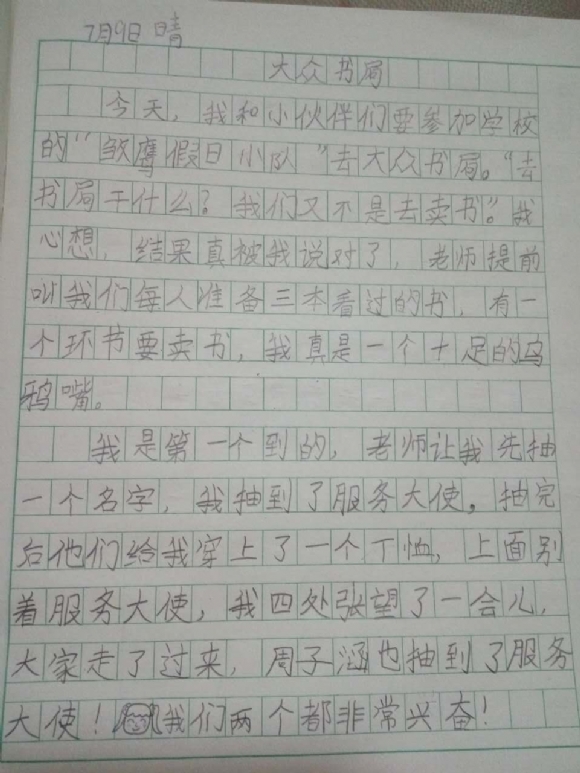 7月9日 晴
大众书局
今天，我和小伙伴们要参加学校
的“雏鹰假日小队”去大众书局。“去
书局干什么？我们又不是去卖书”。我
心想，结果真被我说对了，老师提前
叫我们每人准备三本看过的书，有一
个环节要卖书，我真是一个十足的乌
鸦嘴。
我是第一个到的，老师让我先抽
一个名字，我抽到了服务大使，抽完
后他们给我穿上了一个丁恤，上面别
着服务大使，我四处张望了一会儿，
大家走了过来，周子涵也抽到了服务
大使！我们两个都非常兴奋！